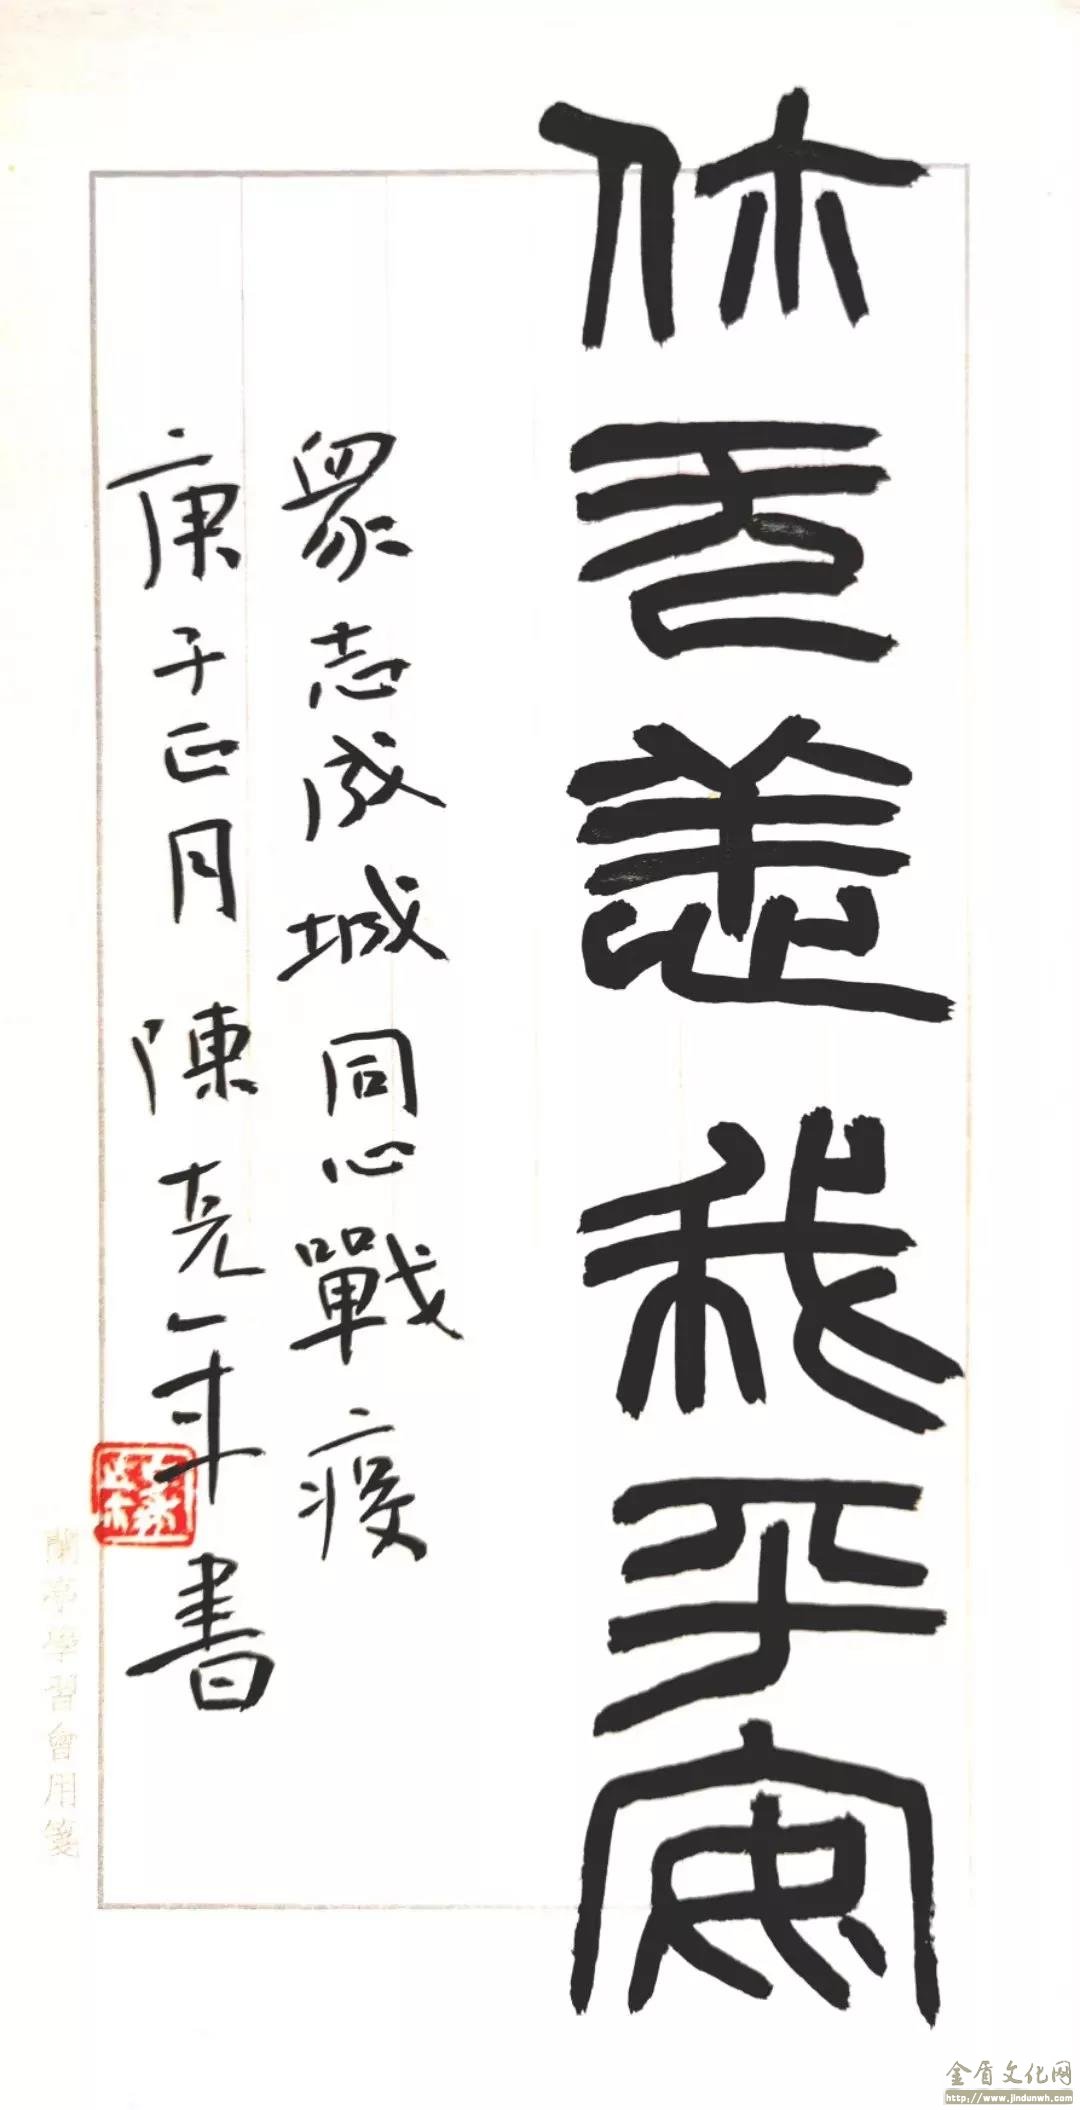 你无恙我平安
眾志成城同心戰疫
庚子正月陳克年書
蘭亭學習會用箋
金盾文化网
http://www.jindunwh.com